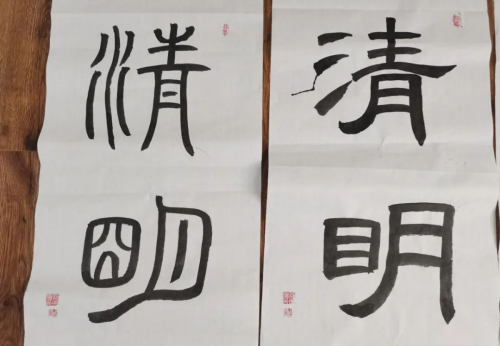 清明
清明